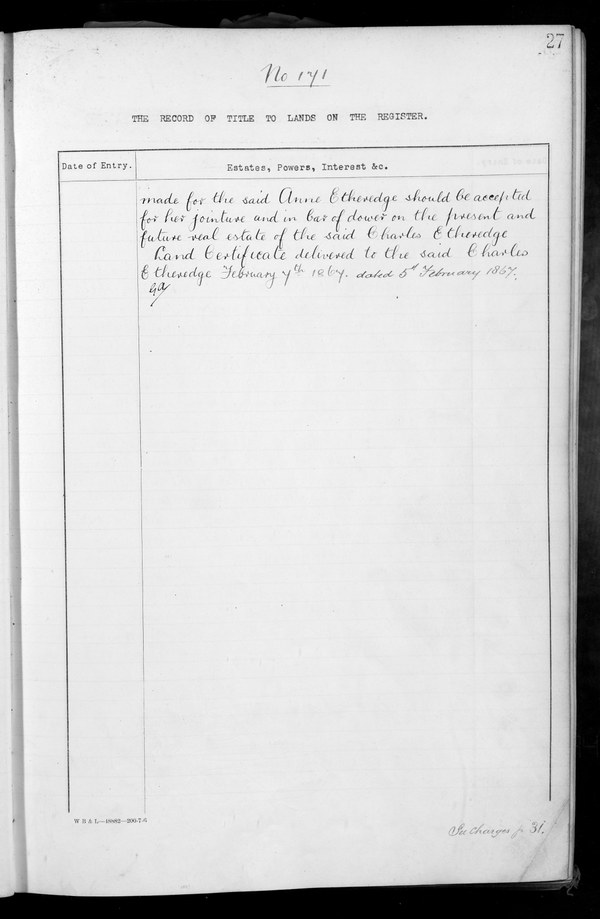 27
No 171
THE RECORD OF TITLE TO LANDS ON THE REGISTER.
Date of Entry.
Estates, Powers, Interest &c.
made for the said Anne Etheredge should be accepted
for her jointure and in bar of dower on the present and
future real estate of the said Charles Etheredge
Land Certificate delivered to the said Charles
Etheredge February 7th 1867. dated 5th February 1867.
W B & L—
—200-7-
See Charges p 31.